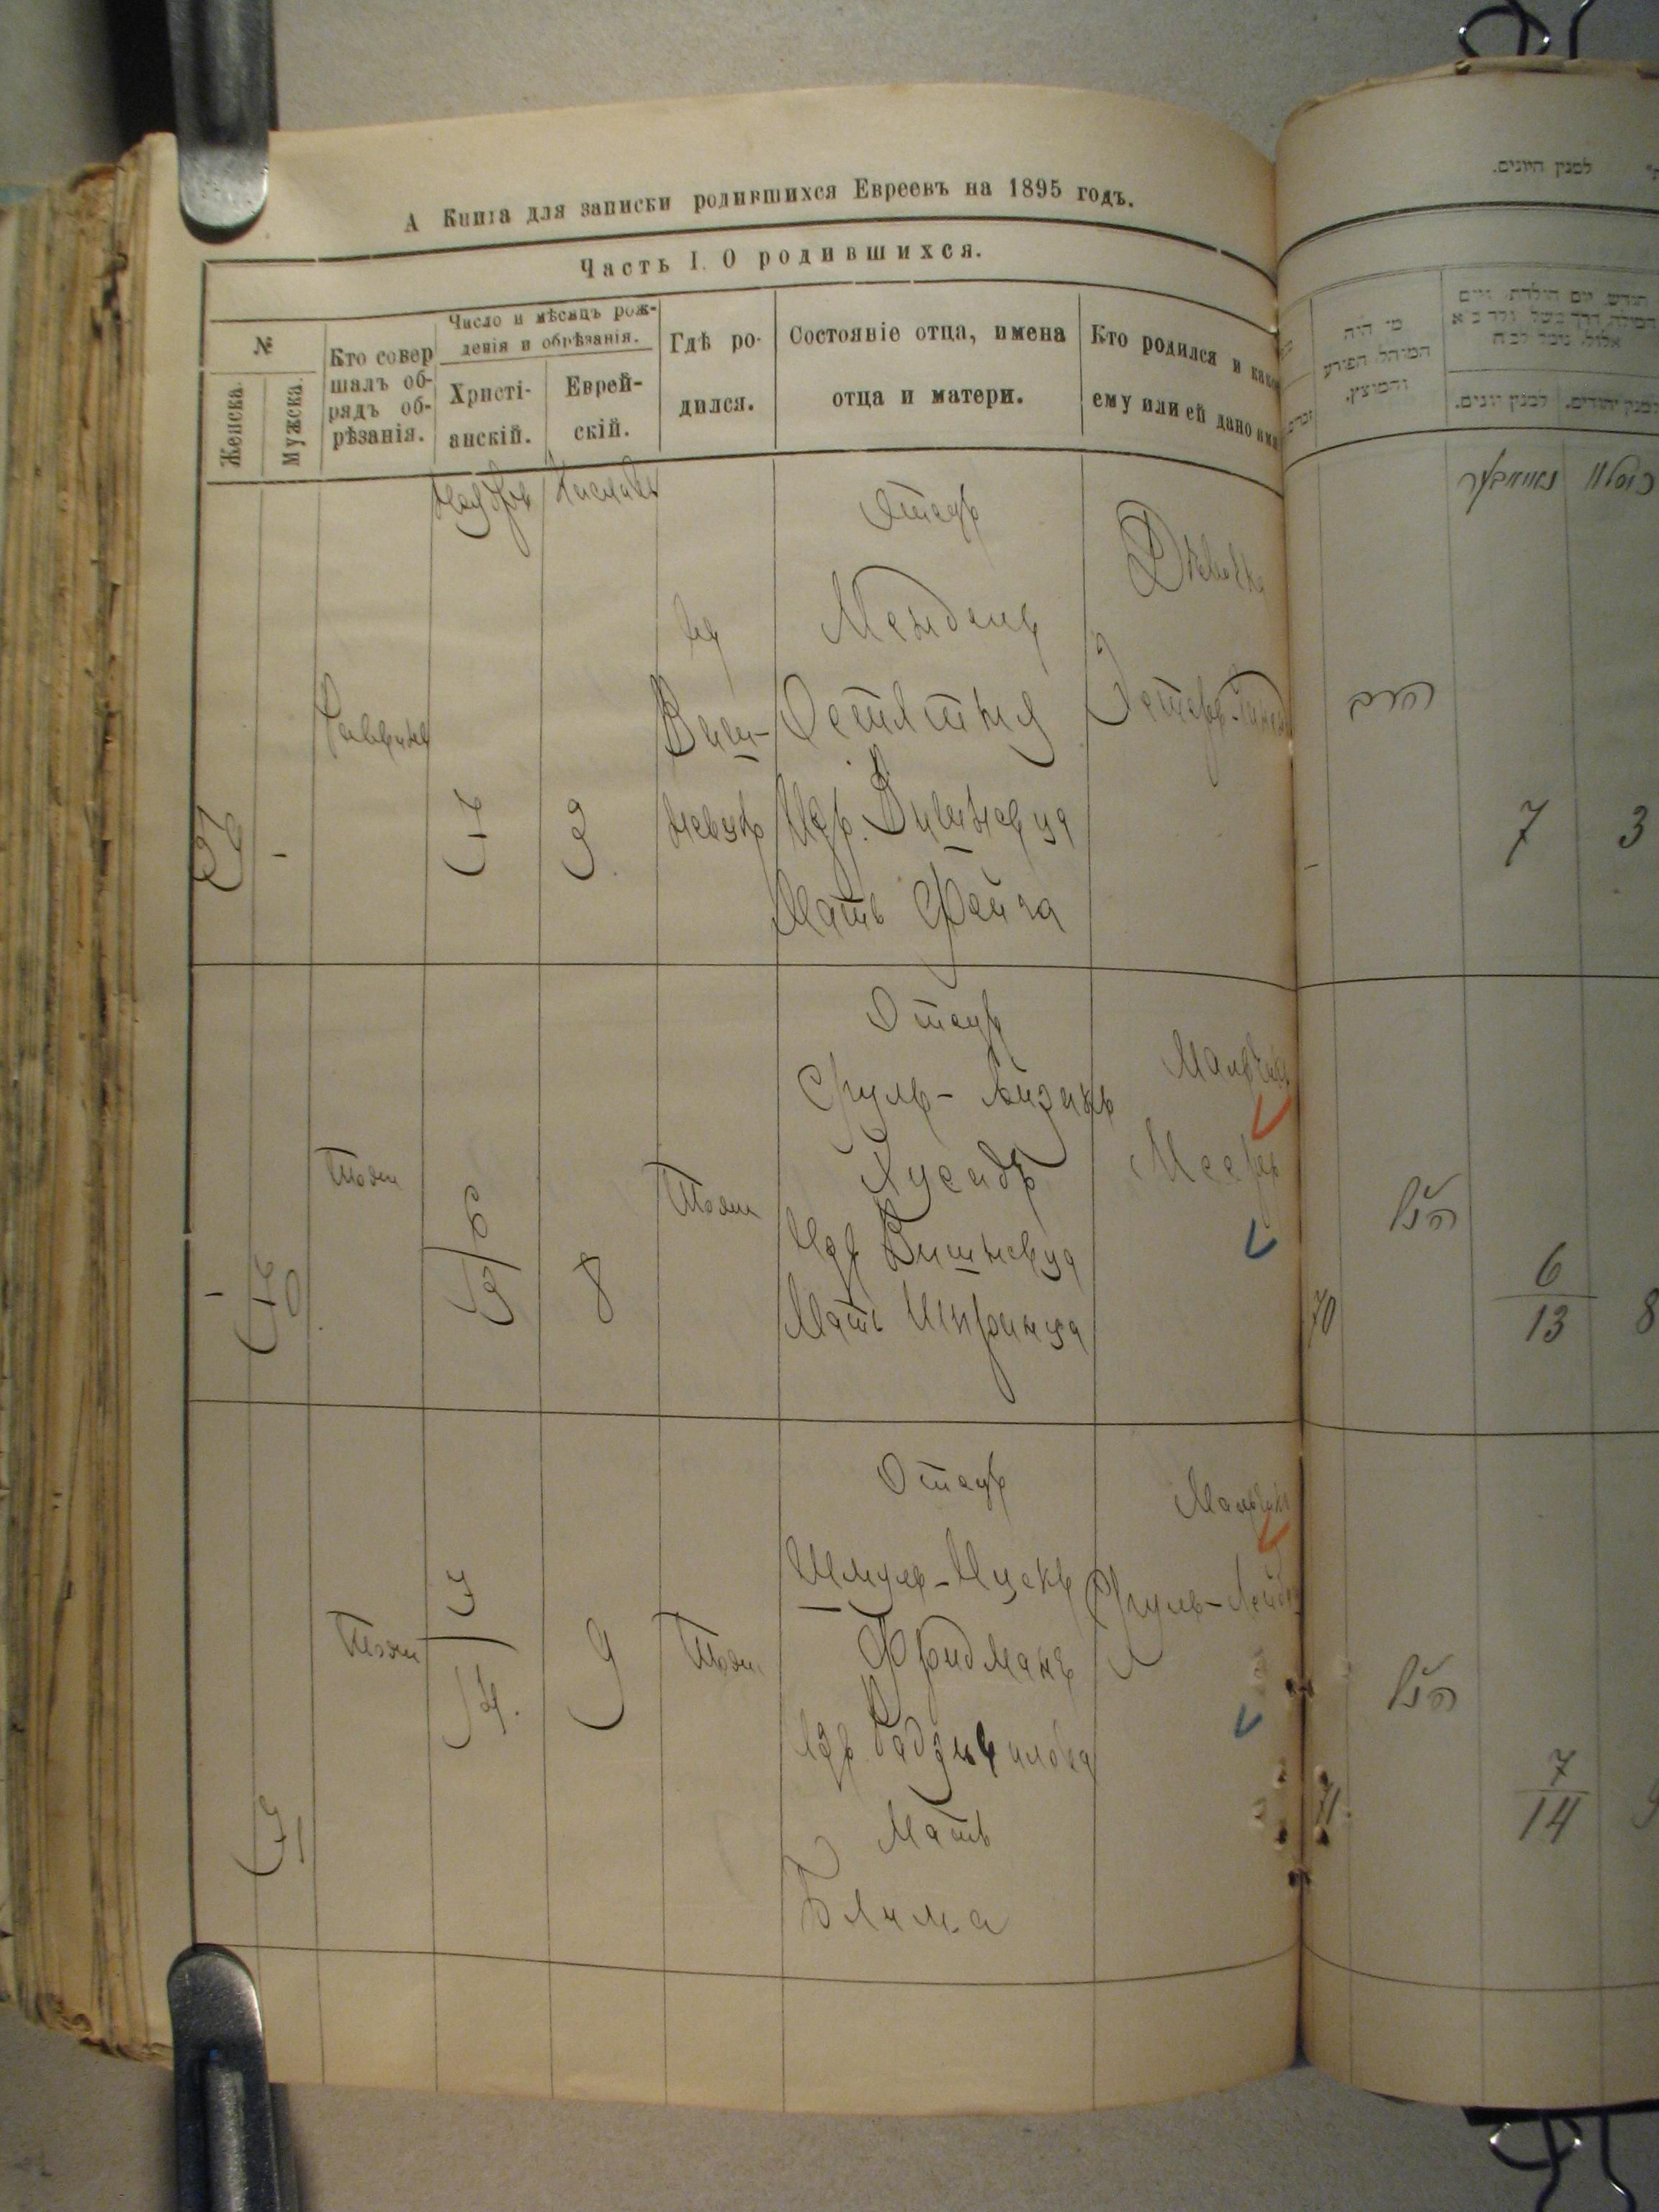 А Книга для записки родившихся Евреевъ на 1895 годъ.
Часть I. О родившихся.
№
Женска.
Мужска.
Кто совер
шалъ об-
рядъ об-
рѣзанія.
Число и мѣсяцъ рож-
денія и обрѣзанія.
Христі-
анскій.
Еврей-
скій.
Гдѣ ро-
дился.
Состояніе отца, имена
отца и матери.
Кто родился и какое
ему или ей дано имя
-
Раввинъ
Ноябрь
7
Кислевъ
3
въ
Виш-
невцѣ
Отецъ
Мендель
Остятный
Изр. Вишневца
Мать Фейга
Дѣвочка
Эстеръ
-
70
Тоже
6/13
8
Тоже
Отецъ
Сруль-Айзикъ
Изр Вишневца
Мать Шпринца
Мальчикъ
Мееръ
71
Тоже
7/14.
9
Тоже
Отецъ
Шмуль-Ицекъ
Фридманъ
Изр. Радзивилова
Мать
Блюма
Мальчикъ
Сруль-Лейб
למנין היונים.
מי היה
המוהל הפורע
והמוצץ.
למנין יונים.
נאוועמבער
כסלו
הרב
7
3
70
הנ"ל
6/13
8
71
הנ"ל
7/14
9